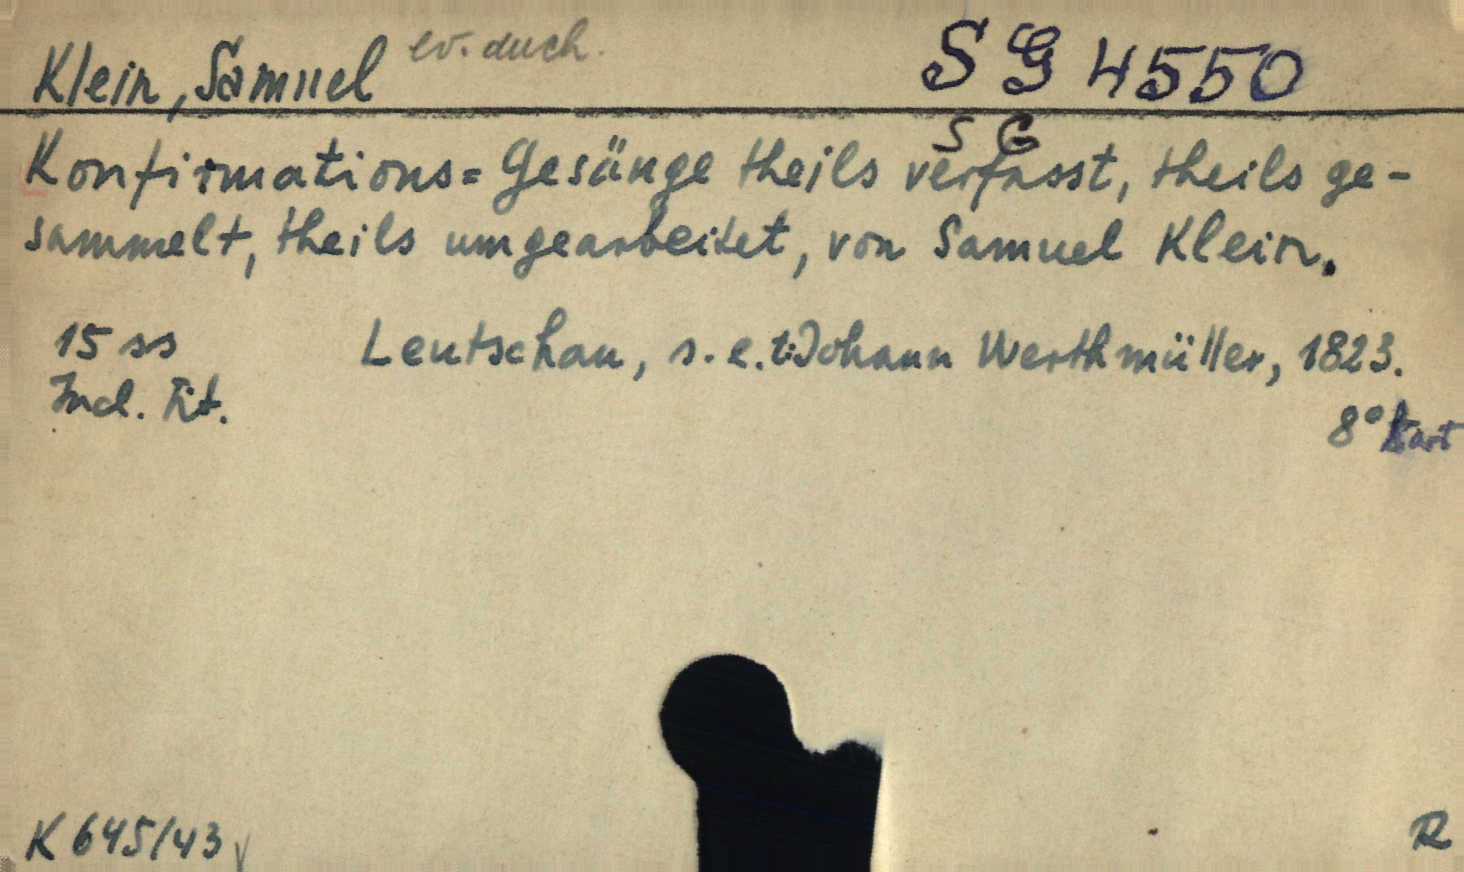 Klein, Samuel ev. duch. SG 4550
SG
Konfirmations=Gesänge theils verfasst, theils ge-
sammelt, theils umgearbeitet, von Samuel Klein.
15 ss Leutschau, s. e. t: Johann Werthmüller, 1823.
Incl. Tit.
8° kart
K 645/43 R